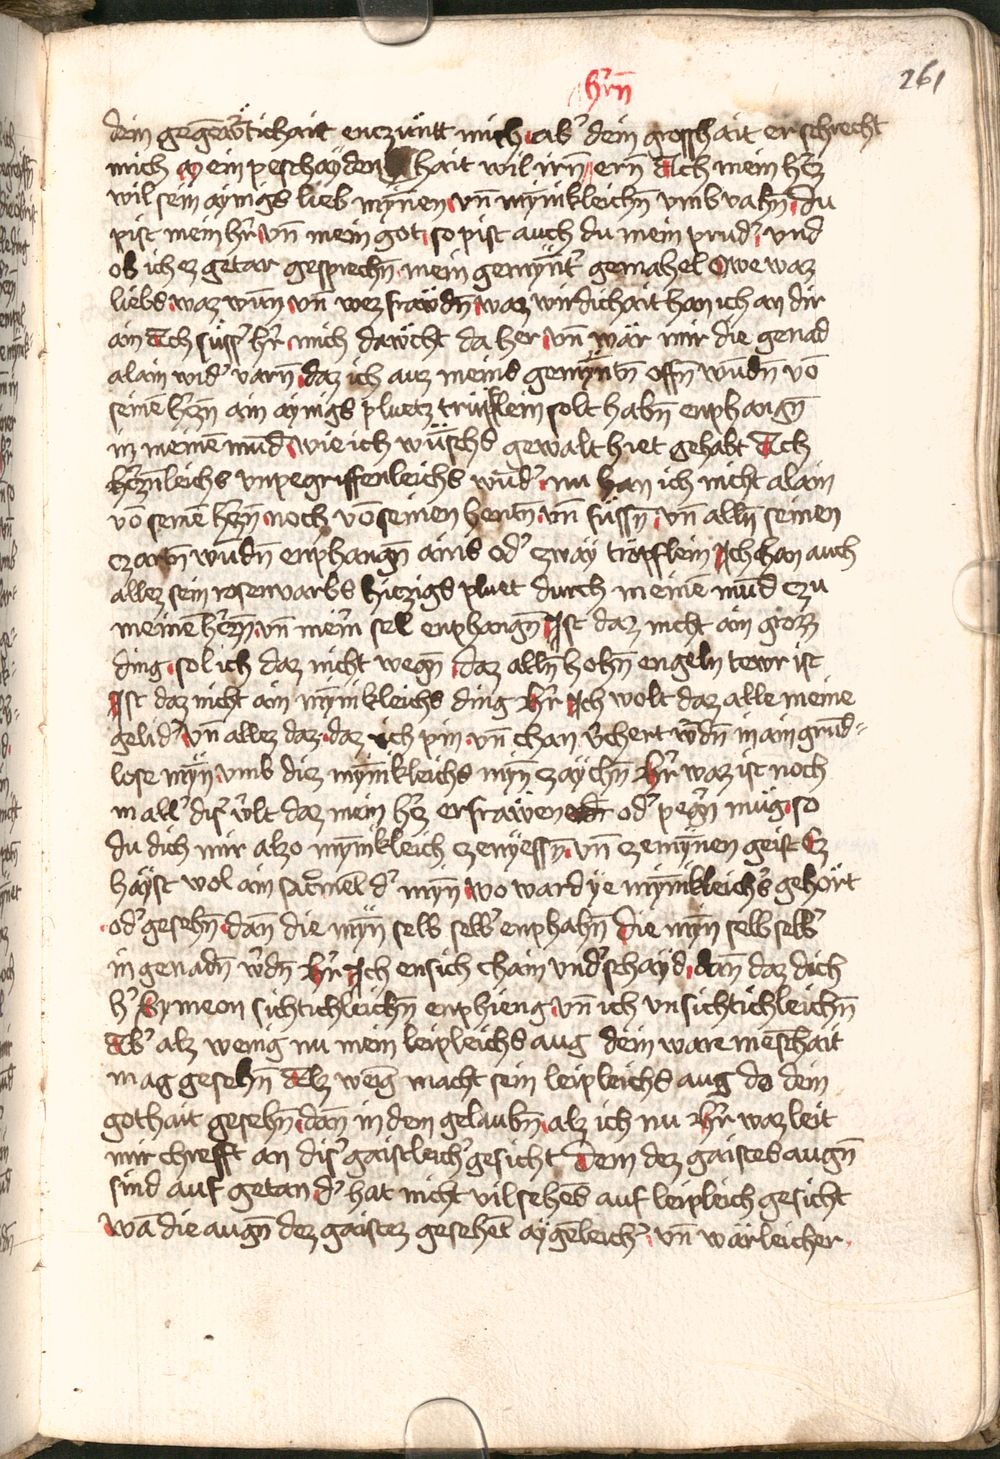 261
hrn̄
dein gegēwürtichait enczüntt mich ab' dein grosshait erschrecht
mich mein peschayden hait wil irn̄ ern̄ Ach mein hercz
wil sein aynigs lieb mynnen vn̄ mynnikleichn̄ vmbvahn̄ du
pist mein h'r vn̄ mein got so pist auch du mein prud' vnd
ob ich ez getar gesprechn̄ mein gemynnt' gemahel Owe waz
liebs waz wun̄ vn̄ wez fräwdn̄ waz wirdichait han ich an dir
ain Ach süss' h'r mich dawcht da her vn̄ wär mir die genad
alain wid'varn̄ daz ich auz meins gemyntn̄ offn̄ wūdn̄ vō
seinē h'czn̄ ain aynigs pluetz trüpflein solt habn̄ enphangn̄
in meinē mūd wie ich wünschs gewalt hiet gehabt Ach
h'czenleichs vnpegriffenleichs wūd' nu han ich nicht alain
vō seinē h'czn̄ noch vō seinen hentn̄ vn̄ füssn̄ vn̄ alln̄ seinen
czartn̄ wūdn̄ enphangn̄ ains od' czway tröpflein Ich han auch
allez sein rosenvarbs hiczigs pluet durch meinē mūd czu
meinē h'czn̄ vn̄ mein'n sel enphangn̄ Ist daz nicht ain grozz
ding sol ich daz nicht wegn̄ daz alln̄ hohn̄ engeln tewr ist
Ist daz nicht ain mynnikleichs ding h'r Ich wolt daz alle meine
gelid' vn̄ allez daz daz ich pin vn̄ chan v'chert w'dn̄ in ain grūd-
lose mÿn vmb diez mynnikleichs mÿn czaychn̄ h'r waz ist noch
in all' dis' w'lt daz mein h'cz erfräwen od' peg'n müg so
du dich mir alzo mynnikleich cze nyessn̄ vn̄ cze mynnen geist Ez
hayst wol ain sacment d' mÿn wo ward ye mynnikleich's gehört
od' gesehn̄ dan̄ die mÿn selb selb' enphahn̄ die mÿn selb selb'
in genadn̄ w'dn̄ h'r Ich ensich chain vnd'schayd dan̄ daz dich
h' Symeon sichtichleichn̄ enphieng vn̄ ich vnsichtichleichn̄
Ab' alz wenig nu mein leipleichs aug dein ware mēschait
mag gesehn̄ Alz wēig macht sein leipleichs aug do dein
gothait gesehn̄ dan̄ in dem gelaubn̄ alz ich nu h'r waz leit
mir chrefft an dis' gaistleich' gesicht Dem dez gaistes augn̄
sind auf getan d' hat nicht vil sehēs auf leipleich gesicht
Wā die augn̄ dez gaistez gesehēt aygēleich' vn̄ wärleicher